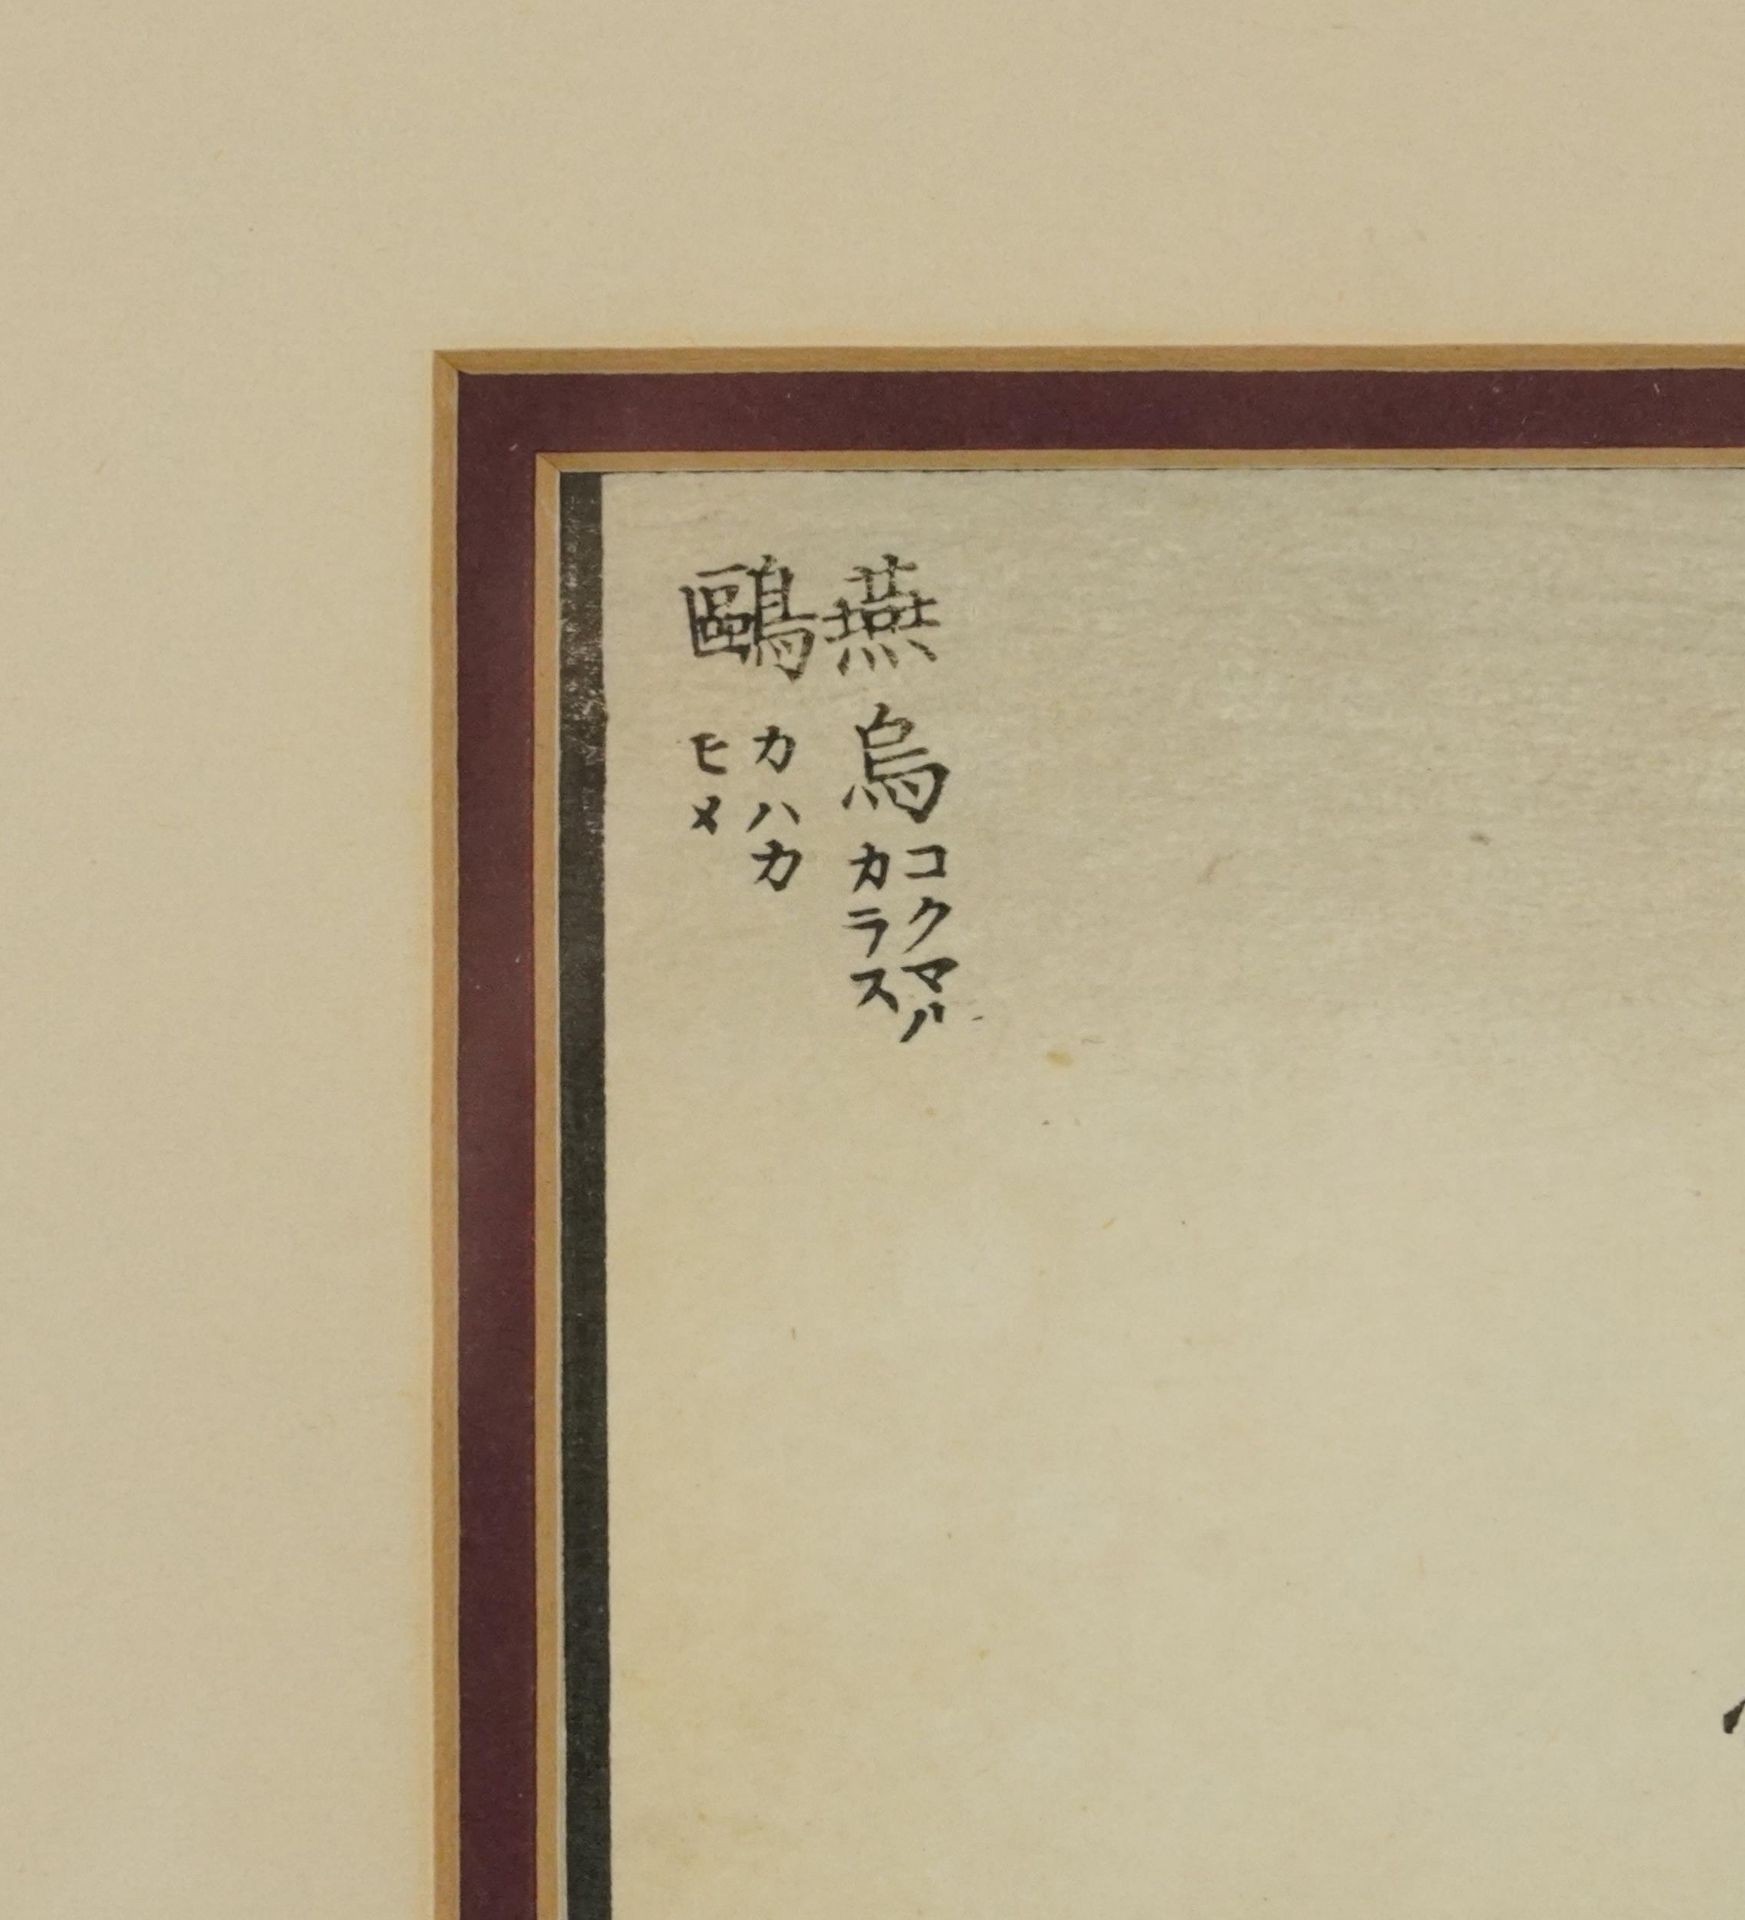 燕烏
コクマル
カラス
鷗
カハカ
モメ